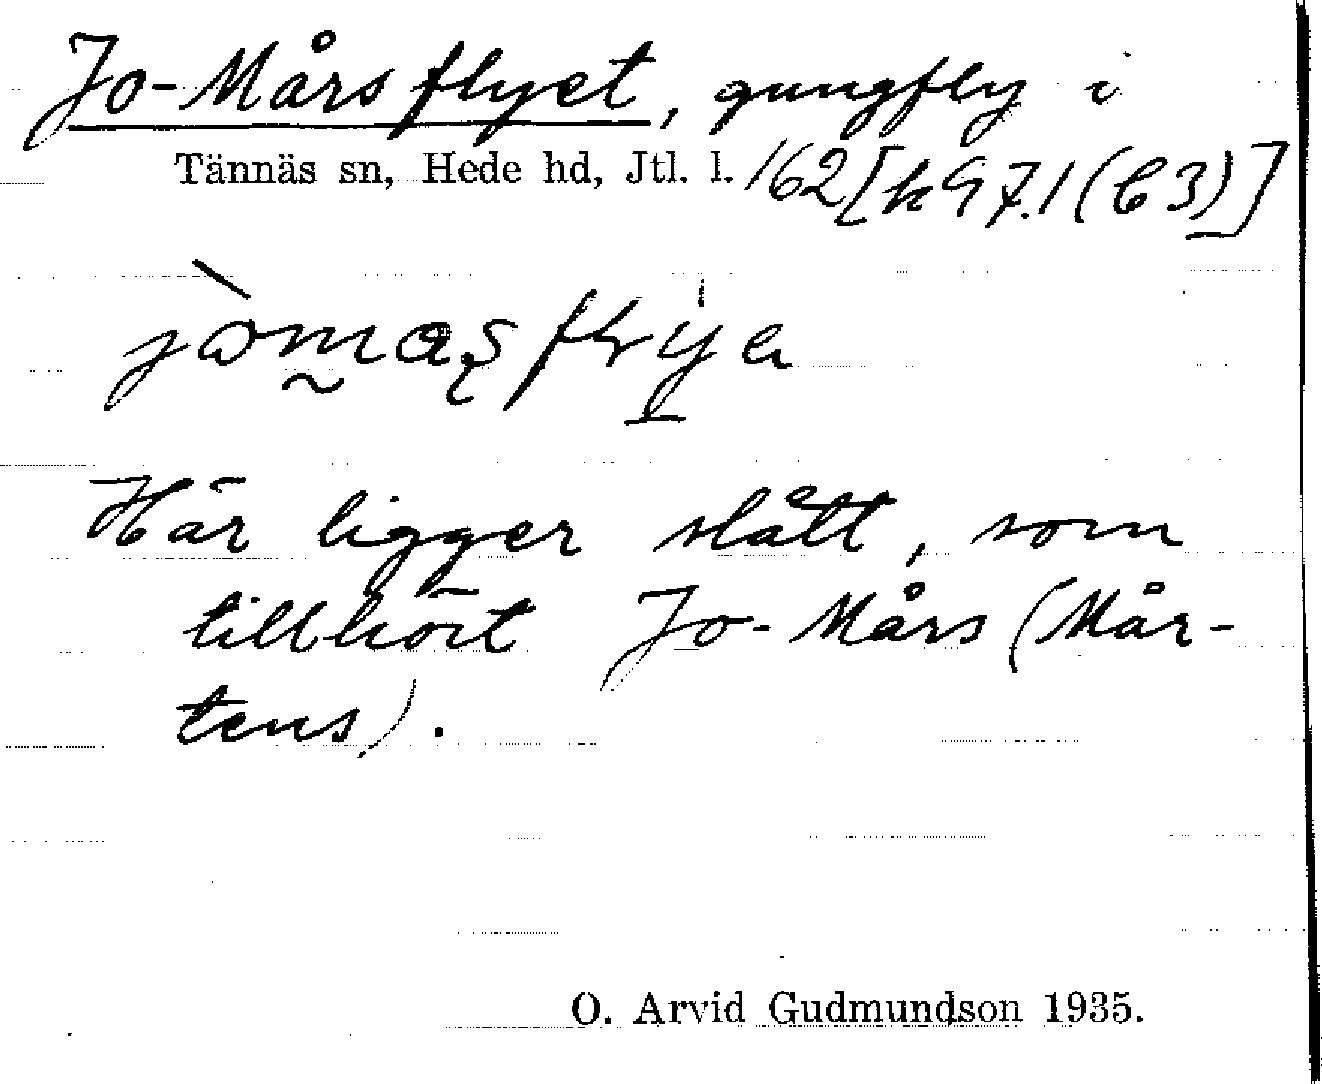 Jo-Mårsflyet, gungfly i
Tännäs sn, Hede hd, Jtl. l. 162 [k 97.1 (C3)]
Här ligger slått, som
tillhört Jo-Mårs (Mår-
tens).
O. Arvid Gudmundson 1935.